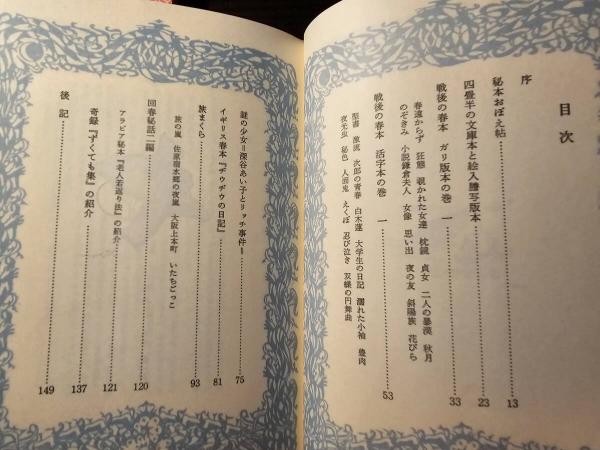 目次
序
秘本おぼえ帖 13
四畳半の文庫本と絵入謄写版本 23
戦後の春本 ガリ版本の巻 一 33
春遠からず 狂態 覗かれた女達 枕鏡 貞女 二人の暴漢 秋月
のぞきみ 小説鎌倉夫人 女像 思い出 夜の友 斜陽族 花びら
戦後の春本 活字本の巻 一 53
聖書 激流 次郎の青春 白木蓮 大学生の日記 濡れた小袖 豊肉
夜光虫 秘色 人面鬼 えくぼ 忍び泣き 双蝶の円舞曲
謎の少女=深谷あい子とリッチ事件= 75
イギリス春本『ヂウヂウの日記』 81
旅まくら 93
旅の嵐 佐原宿水郷の夜嵐 大阪上本町 いたちごっこ
回春秘話二編 120
アラビア秘本『老人若返り法』の紹介 121
奇録『ずくても集』の紹介 137
後記 149